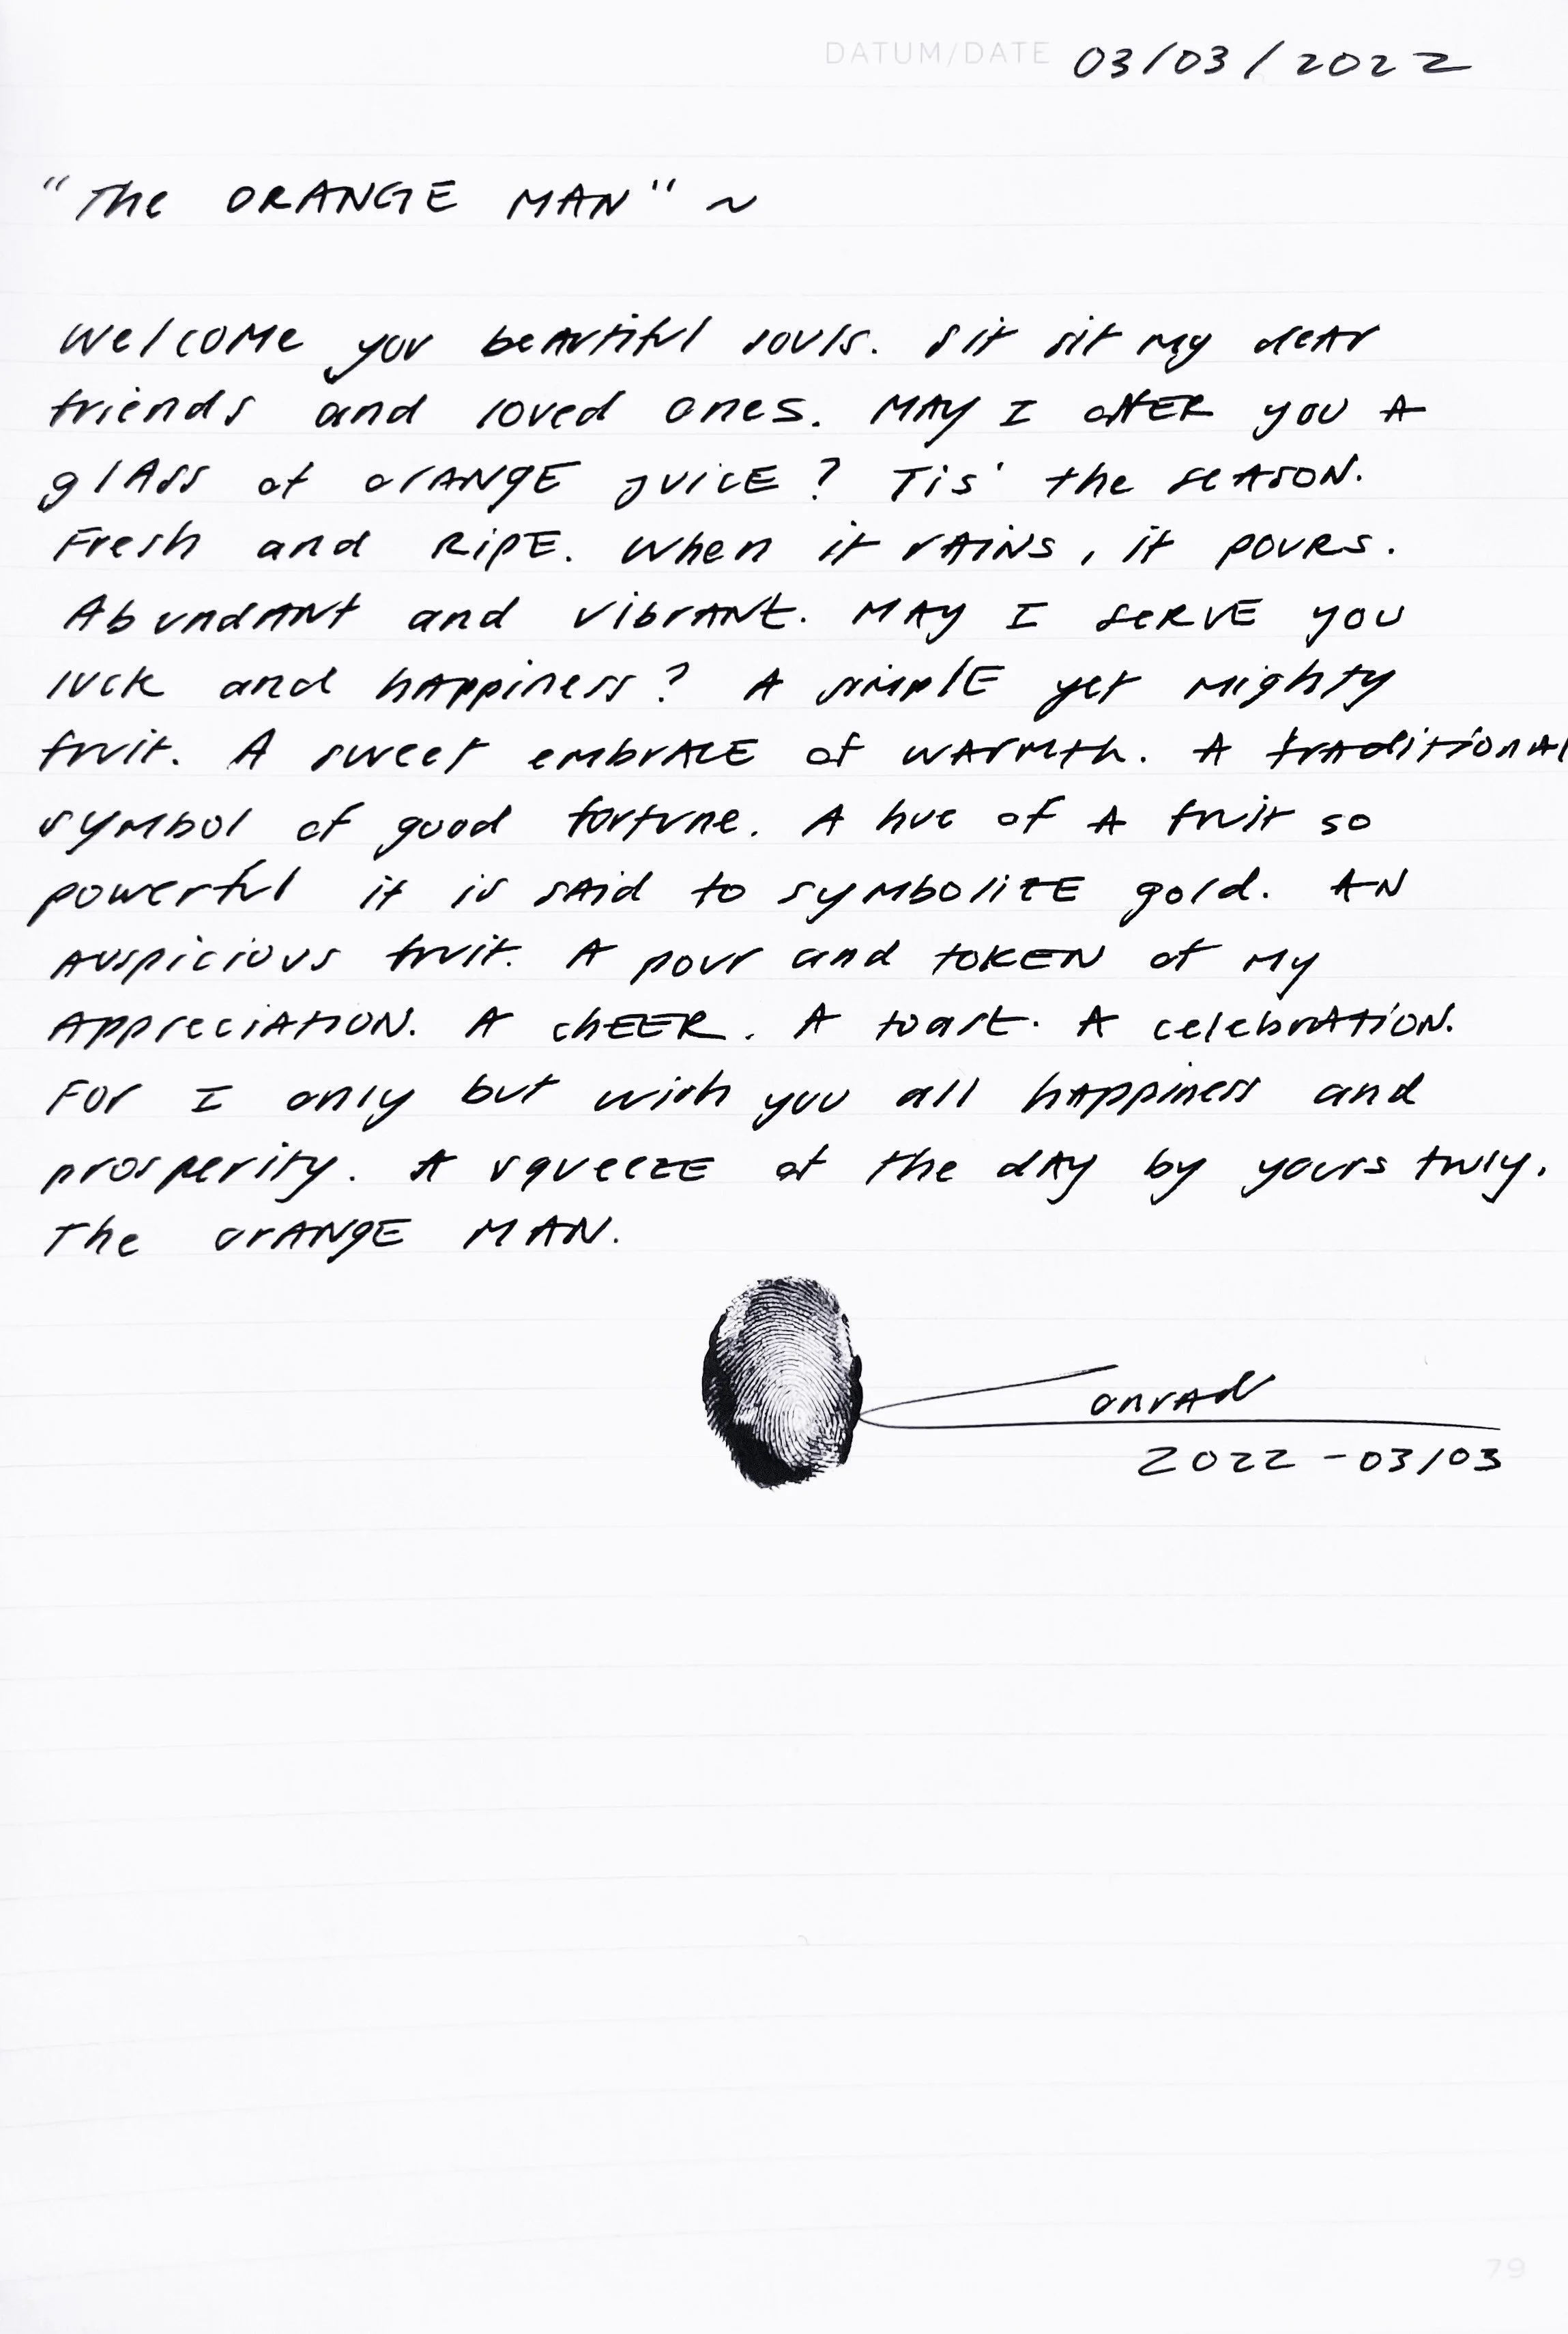 DATUM/DATE 03/03/2022
"The ORANGE MAN" ~
Welcome you beautiful souls. Sit sit my dear
friends and loved ones. MAY I offER you A
glAss of orANgE juicE? Tis' the seASON.
Fresh and RipE. When it rAiNS, it pouRs.
AbundANt and vibrANt. MAY I seRvE you
luck and hAppiness? A simplE yet mighty
fruit. A sweet embrAcE of wArmth. A trAditionAl
symbol of good fortune. A hue of A fruit so
powerful it is sAid to symbolizE gold. AN
Auspicious fruit. A pour and toKEN of my
AppreciAtiON. A chEER. A toast. A celebrAtiON.
For I only but wish you all hAppiness and
prosperity. A squeezE of the dAy by yours truly.
The orANgE MAN.
onrAd
2022 - 03/03
79